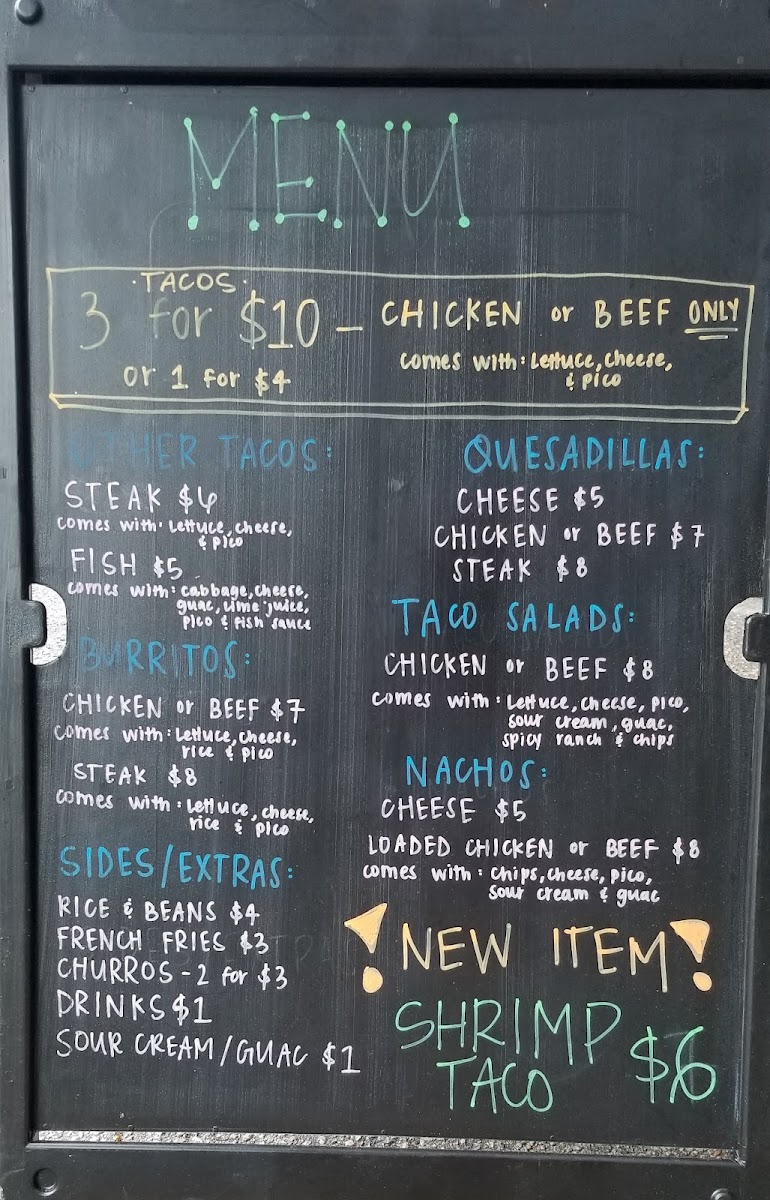 MENU
·TACOS·
3 for $10 – CHICKEN or BEEF ONLY
or 1 for $4
comes with: lettuce, cheese,
& pico
OTHER TACOS:
STEAK $6
comes with: lettuce, cheese,
& pico
FISH $5
comes with: cabbage, cheese,
guac, lime juice,
pico & fish sauce
BURRITOS:
CHICKEN or BEEF $7
comes with: lettuce, cheese,
rice & pico
STEAK $8
comes with: lettuce, cheese,
rice & pico
SIDES/EXTRAS:
RICE & BEANS $4
FRENCH FRIES $3
CHURROS - 2 for $3
DRINKS $1
SOUR CREAM/GUAC $1
QUESADILLAS:
CHEESE $5
CHICKEN or BEEF $7
STEAK $8
TACO SALADS:
CHICKEN or BEEF $8
comes with: lettuce, cheese, pico,
sour cream, guac,
spicy ranch & chips
NACHOS:
CHEESE $5
LOADED CHICKEN or BEEF $8
comes with: chips, cheese, pico,
sour cream & guac
! NEW ITEM !
SHRIMP
TACO $6